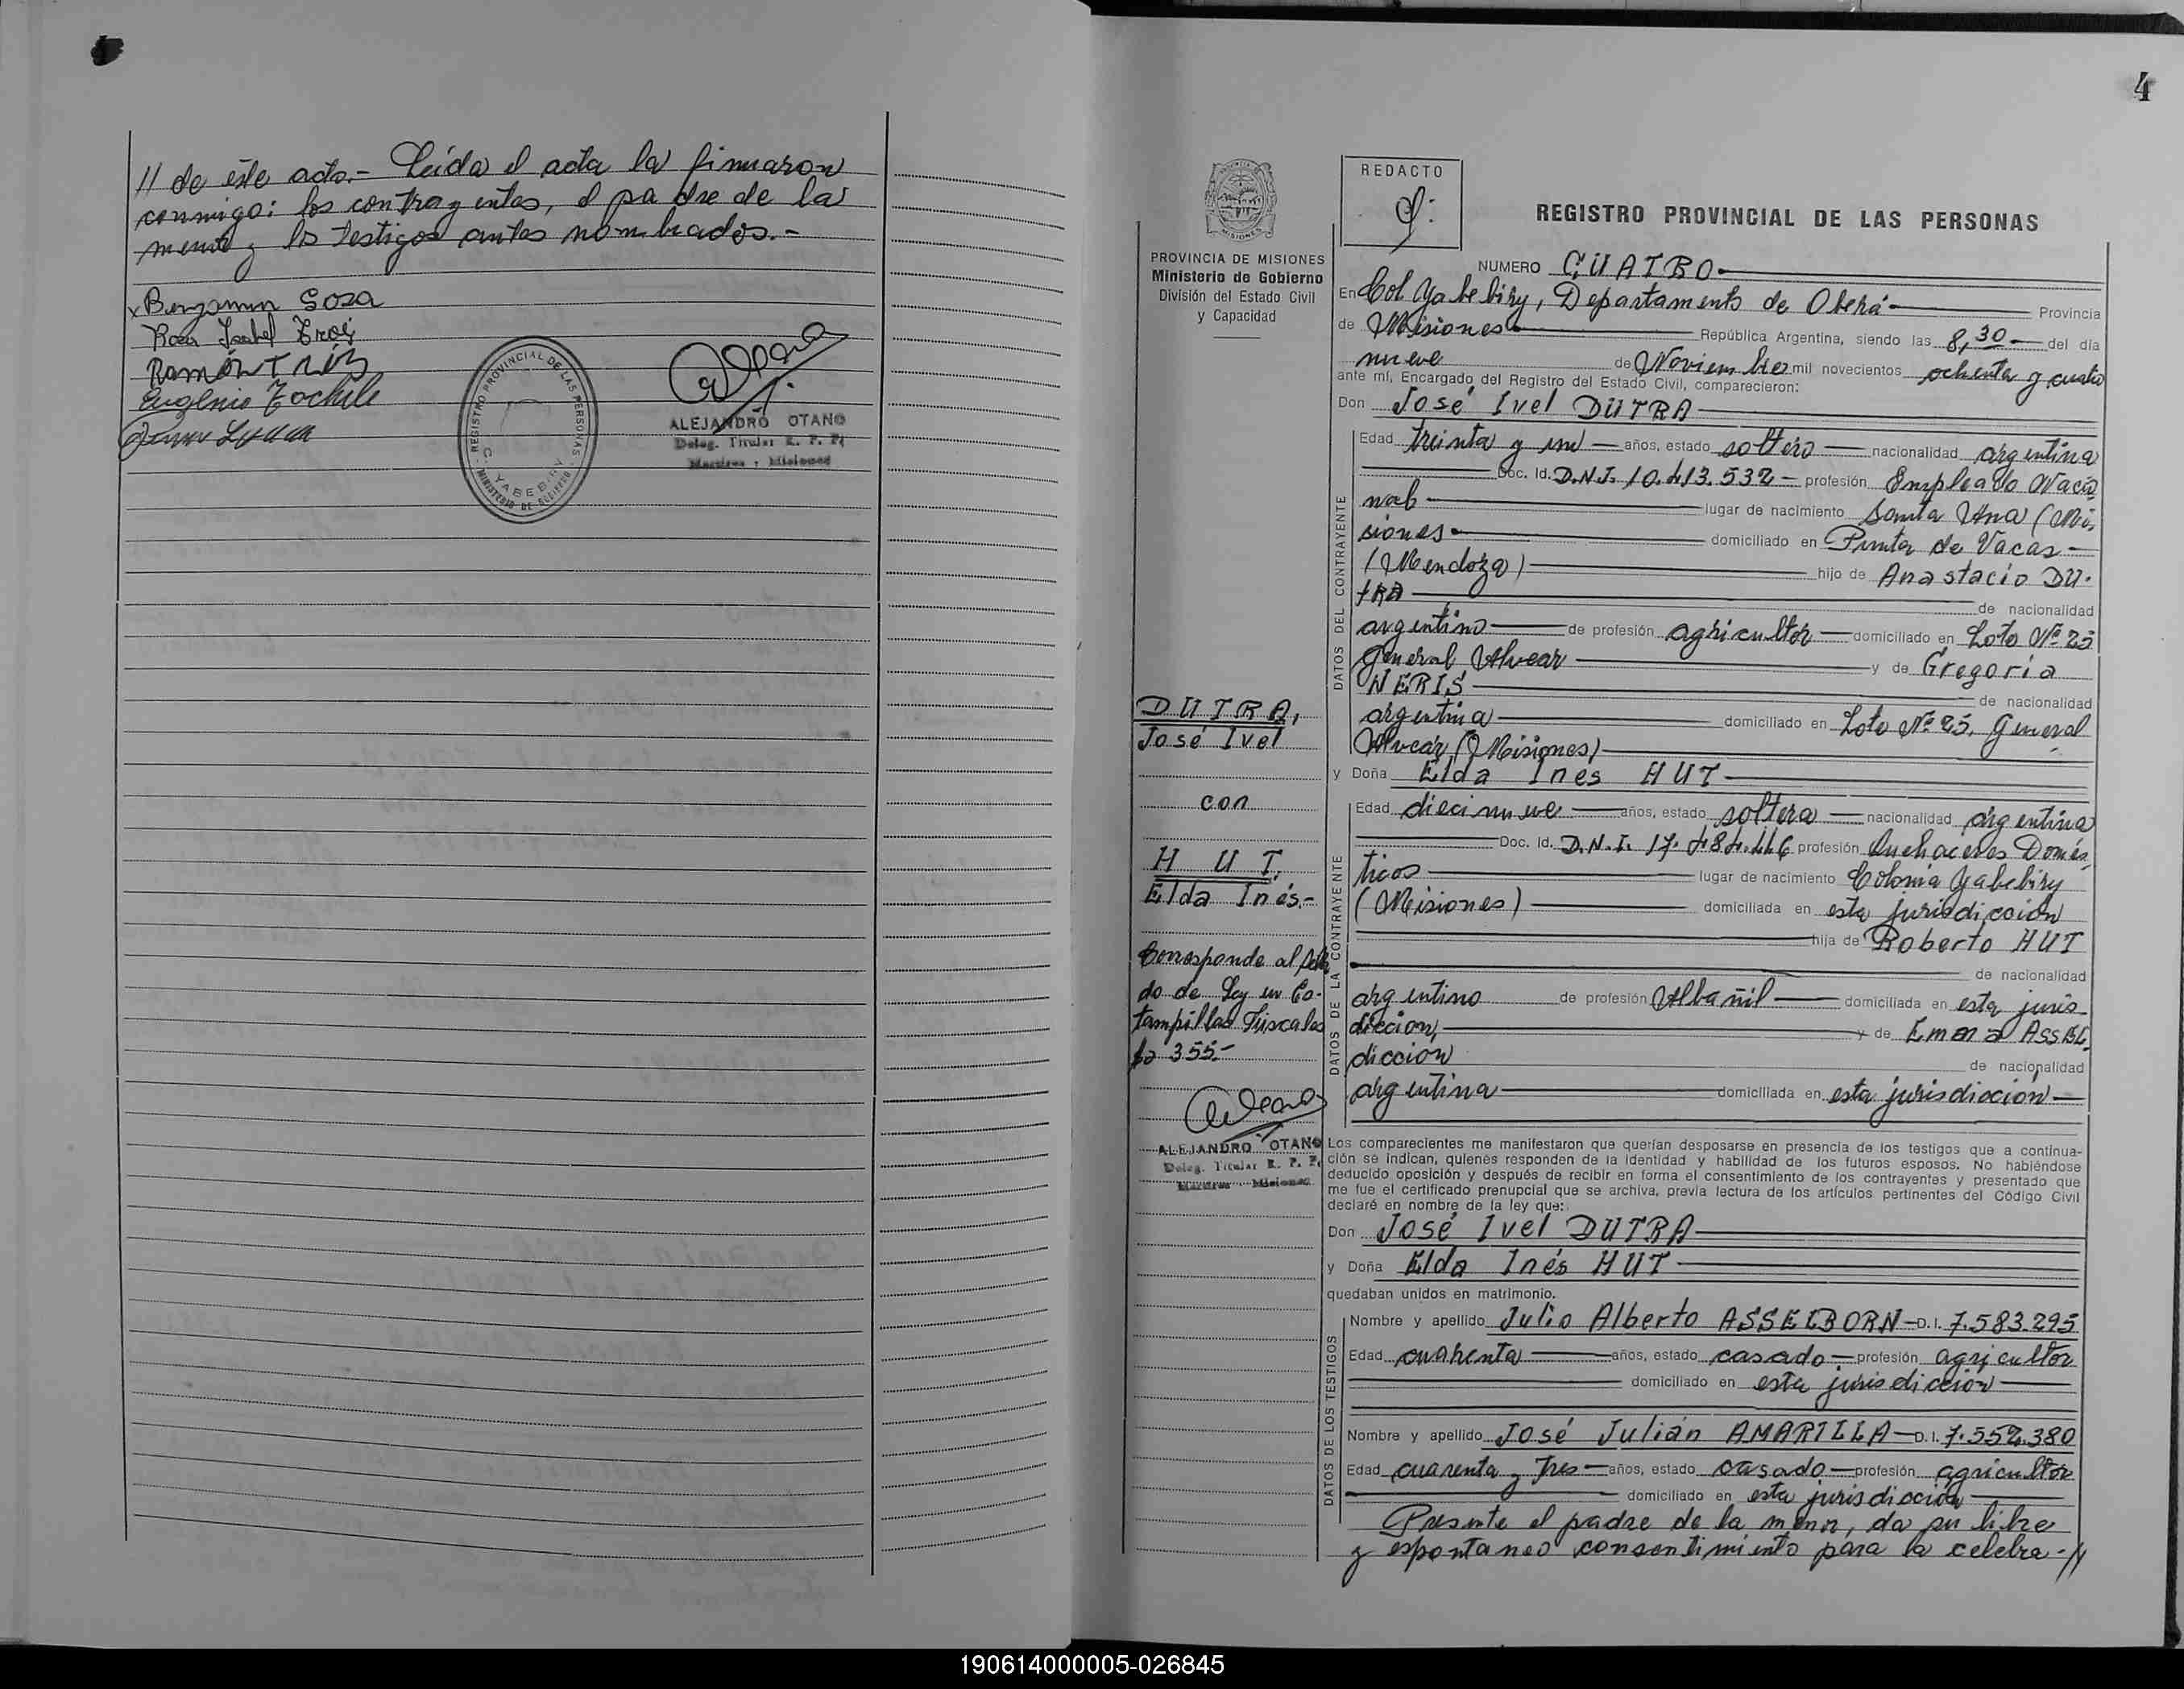 // de este acto.- Leída el acta la firmaron
conmigo: los contrayentes, el padre de la
menor y los testigos antes nombrados.-
x Benjamin Sosa
Rosa Isabel
RAMÓN
Eugenio
REGISTRO PROVINCIAL DE LAS PERSONAS
C. YABEBIRY
MINISTERIO DE GOBIERNO
ALEJANDRO OTANO
Deleg. Titular R. P. P.
Martires - Misiones
4
PROVINCIA DE MISIONES
Ministerio de Gobierno
División del Estado Civil
y Capacidad
DUTRA,
José Ivel
con
HUT,
Elda Inés.-
Corresponde al Sella
do de Ley en Es-
tampillas Fiscales
$a 355.-
ALEJANDRO OTANO
Deleg. Titular R. P. P.
Martires - Misiones
REDACTO
REGISTRO PROVINCIAL DE LAS PERSONAS
NUMERO CUATRO
En Col Yabebiry, Departamento de Oberá Provincia
de Misiones República Argentina, siendo las 8,30 del día
nueve de Noviembre mil novecientos ochenta y cuatro
ante mí, Encargado del Registro del Estado Civil, comparecieron:
Don José Ivel DUTRA
DATOS DEL CONTRAYENTE
Edad treinta y un años, estado soltero nacionalidad argentina
Doc. Id. D.N.I. 10.413.532 - profesión Empleado Nacio
nal lugar de nacimiento Santa Ana (Mi,
siones domiciliado en Punta de Vacas -
(Mendoza) hijo de Anastacio DU-
TRA de nacionalidad
argentino de profesión agricultor domiciliado en Loto Nº 25
General Alvear y de Gregoria
NERIS de nacionalidad
argentina domiciliado en Loto Nº 25, General
Alvear (Misiones)
y Doña Elda Ines HUT
DATOS DE LA CONTRAYENTE
Edad diecinueve años, estado soltera nacionalidad argentina
Doc. Id. D.N.I. 17.484.446 profesión Quehaceres Domés
ticos lugar de nacimiento Colonia Yabebiry
(Misiones) domiciliada en esta jurisdicción
hija de Roberto HUT
de nacionalidad
argentino de profesión Albañil domiciliada en esta juris
dicción, y de Emma ASSEL
dicción de nacionalidad
argentina domiciliada en esta jurisdicción
Los comparecientes me manifestaron que querían desposarse en presencia de los testigos que a continua-
ción se indican, quienes responden de la identidad y habilidad de los futuros esposos. No habiéndose
deducido oposición y después de recibir en forma el consentimiento de los contrayentes y presentado que
me fue el certificado prenupcial que se archiva, previa lectura de los artículos pertinentes del Código Civil
declaré en nombre de la ley que:
Don José Ivel DUTRA
y Doña Elda Inés HUT
quedaban unidos en matrimonio.
DATOS DE LOS TESTIGOS
Nombre y apellido Julio Alberto ASSELBORN D.I. 7.583.295
Edad cuarenta años, estado casado profesión agricultor
domiciliado en esta jurisdicción
Nombre y apellido José Julián AMARILLA D.I. 7.552.380
Edad cuarenta y tres años, estado casado profesión agricultor
domiciliado en esta jurisdicción
Presente el padre de la menor, da su libre
y espontaneo consentimiento para la celebra-//
190614000005-026845